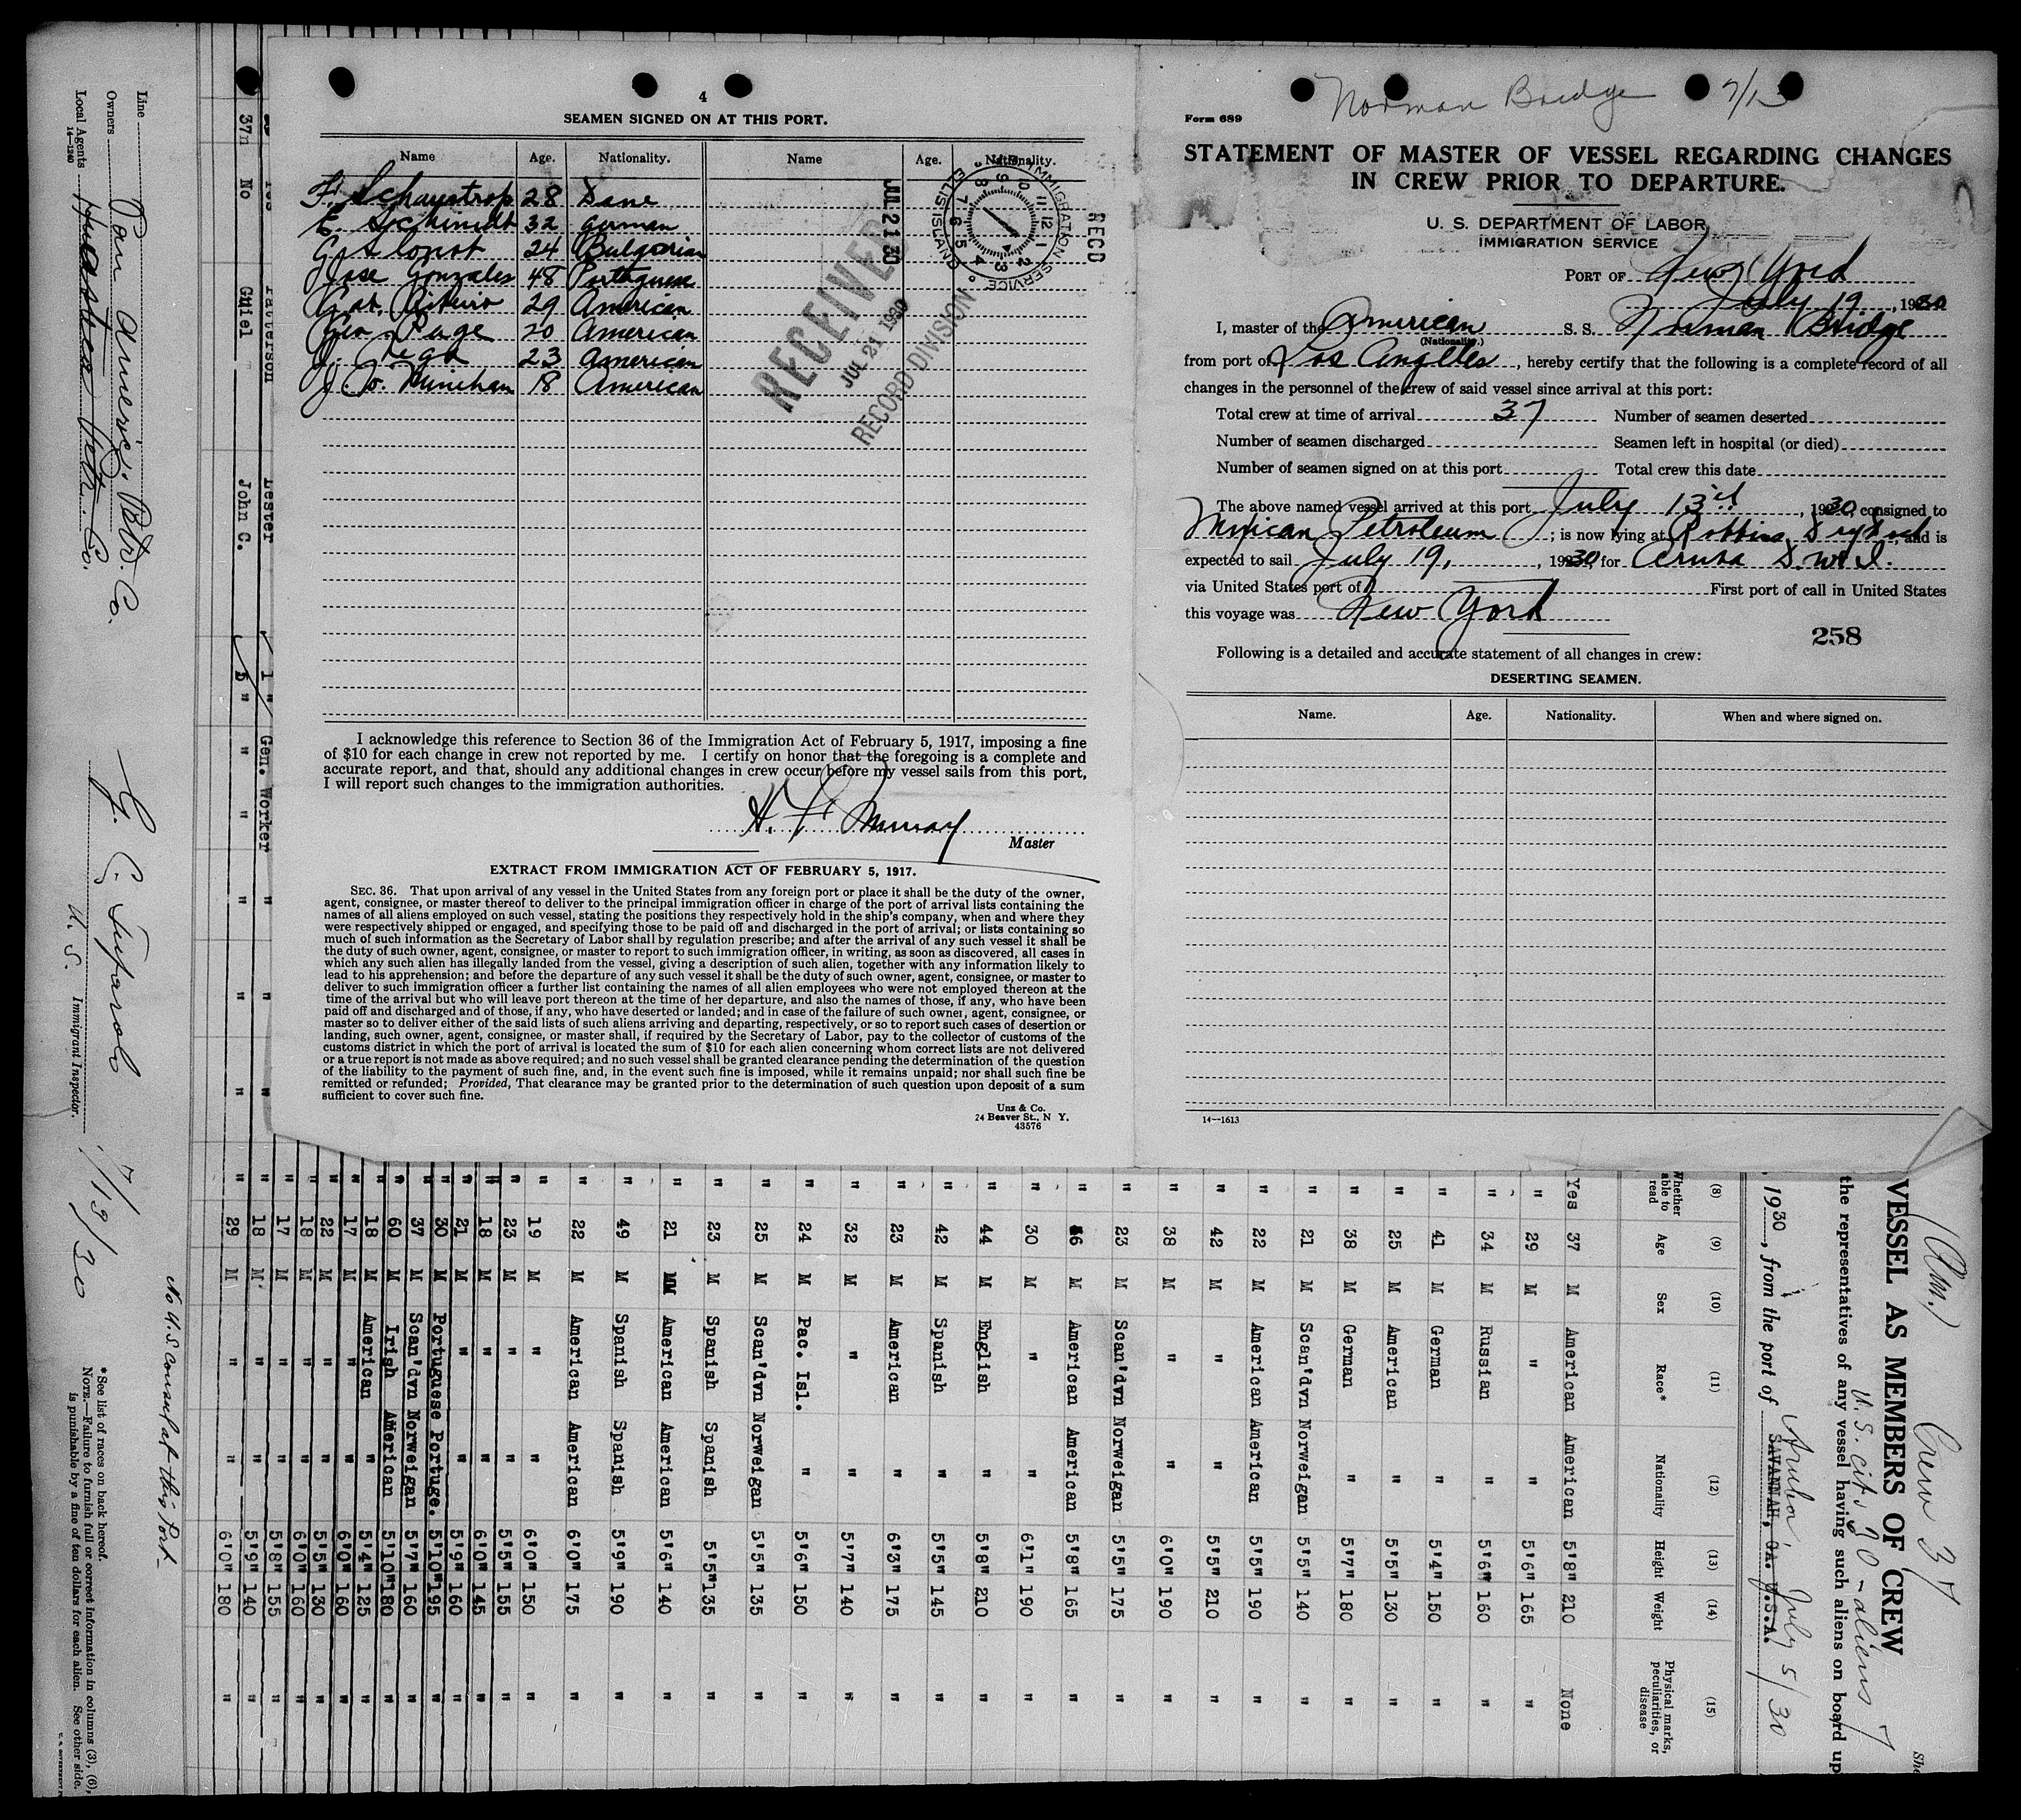 4
SEAMEN SIGNED ON AT THIS PORT.
Name Age. Nationality. Name Age. Nationality.
F. Schaustrop 28 Dane
E. Schimidt 32 German
24 Bulgarian
Jose Gonzales 48 Portuguese
29 American
Geo. Page 20 American
J. Rega 23 American
J. O. Minehan 18 American
RECEIVED
JUL 21 1930
RECORD DIVISION
JUL 21 30
IMMIGRATION SERVICE
ELLIS ISLAND
RECD
I acknowledge this reference to Section 36 of the Immigration Act of February 5, 1917, imposing a fine
of $10 for each change in crew not reported by me. I certify on honor that the foregoing is a complete and
accurate report, and that, should any additional changes in crew occur before my vessel sails from this port,
I will report such changes to the immigration authorities.
H. F. Murray
Master
EXTRACT FROM IMMIGRATION ACT OF FEBRUARY 5, 1917.
SEC. 36. That upon arrival of any vessel in the United States from any foreign port or place it shall be the duty of the owner,
agent, consignee, or master thereof to deliver to the principal immigration officer in charge of the port of arrival lists containing the
names of all aliens employed on such vessel, stating the positions they respectively hold in the ship's company, when and where they
were respectively shipped or engaged, and specifying those to be paid off and discharged in the port of arrival; or lists containing so
much of such information as the Secretary of Labor shall by regulation prescribe; and after the arrival of any such vessel it shall be
the duty of such owner, agent, consignee, or master to report to such immigration officer, in writing, as soon as discovered, all cases in
which any such alien has illegally landed from the vessel, giving a description of such alien, together with any information likely to
lead to his apprehension; and before the departure of any such vessel it shall be the duty of such owner, agent, consignee, or master to
deliver to such immigration officer a further list containing the names of all alien employees who were not employed thereon at the
time of the arrival but who will leave port thereon at the time of her departure, and also the names of those, if any, who have been
paid off and discharged and of those, if any, who have deserted or landed; and in case of the failure of such owner, agent, consignee, or
master so to deliver either of the said lists of such aliens arriving and departing, respectively, or so to report such cases of desertion or
landing, such owner, agent, consignee, or master shall, if required by the Secretary of Labor, pay to the collector of customs of the
customs district in which the port of arrival is located the sum of $10 for each alien concerning whom correct lists are not delivered
or a true report is not made as above required; and no such vessel shall be granted clearance pending the determination of the question
of the liability to the payment of such fine, and, in the event such fine is imposed, while it remains unpaid; nor shall such fine be
remitted or refunded; Provided, That clearance may be granted prior to the determination of such question upon deposit of a sum
sufficient to cover such fine.
Unz & Co.
24 Beaver St., N Y.
43576
Norman Bridge 7/13
Form 689
STATEMENT OF MASTER OF VESSEL REGARDING CHANGES
IN CREW PRIOR TO DEPARTURE.
U. S. DEPARTMENT OF LABOR
IMMIGRATION SERVICE
PORT OF New York
July 19, 1930
I, master of the American S. S. Norman Bridge
(Nationality.)
from port of Los Angeles, hereby certify that the following is a complete record of all
changes in the personnel of the crew of said vessel since arrival at this port:
Total crew at time of arrival 37 Number of seamen deserted
Number of seamen discharged Seamen left in hospital (or died)
Number of seamen signed on at this port Total crew this date
The above named vessel arrived at this port July 13rd, 1930, consigned to
Mexican Petroleum; is now lying at Robbins Drydock, and is
expected to sail July 19, 1930, for Aruba D.W.I.
via United States port of First port of call in United States
this voyage was New York
258
Following is a detailed and accurate statement of all changes in crew:
DESERTING SEAMEN.
Name. Age. Nationality. When and where signed on.
14—1613
Line
Owners Pan Americ. Petr. Co.
Local Agents Huasteca Petr. Co.
14-1240
G. C.
U. S. Immigrant Inspector.
7/19/30
No U.S Consul at this Port
* See list of races on back hereof.
NOTE.—Failure to furnish full or correct information in columns (3), (6),
is punishable by a fine of ten dollars for each alien. See other side.
Patterson Lester 1 " Gen. Worker " " "
37n No Guiel John C. 5 " " " " " "
(Am.) Crew 37
VESSEL AS MEMBERS OF CREW
U.S. cits 30 - aliens 7
the representatives of any vessel having such aliens on board up
, 1930, from the port of SAVANNAH, GA. U.S.A. Aruba, July 5/30
(8) (9) (10) (11) (12) (13) (14) (15)
Whether able to read Age Sex Race* Nationality Height Weight Physical marks, peculiarities, or disease
Yes 37 M American American 5'8" 210 None
" 29 M " " 5'6" 165 "
" 34 M Russian " 5'6" 160 "
" 41 M German " 5'4" 150 "
" 25 M American " 5'5" 130 "
" 38 M German " 5'7" 180 "
" 21 M Scan'dvn Norweigan 5'5" 140 "
" 22 M American American 5'5" 190 "
" 42 M " " 5'5" 210 "
" 38 M " " 6'0" 190 "
" 23 M Scan'dvn Norweigan 5'5" 175 "
" 46 M American American 5'8" 165 "
" 30 M " " 6'1" 190 "
" 44 M English " 5'8" 210 "
" 42 M Spanish " 5'5" 145 "
" 23 M American " 6'3" 175 "
" 32 M " " 5'7" 140 "
" 24 M Pac. Isl. " 5'6" 150 "
" 25 M Scan'dvn Norweigan 5'5" 135 "
" 23 M Spanish Spanish 5'5" 135 "
" 21 M American American 5'6" 140 "
" 49 M Spanish Spanish 5'9" 190 "
" 22 M American American 6'0" 175 "
" 19 M " " 6'0" 150 "
" 23 M " " 5'5" 155 "
" 18 M " " 6'0" 145 "
" 21 M " " 5'9" 160 "
" 30 M Portuguese Portuge. 5'10" 195 "
" 37 M Scan'dvn Norweigan 5'7" 160 "
" 60 M Irish American 5'10" 180 "
" 18 M American " 5'4" 125 "
" 17 M " " 6'0" 160 "
" 22 M " " 5'5" 130 "
" 18 M " " 6'0" 160 "
" 17 M " " 5'8" 155 "
" 18 M " " 5'9" 140 "
" 29 M " " 6'0" 180 "